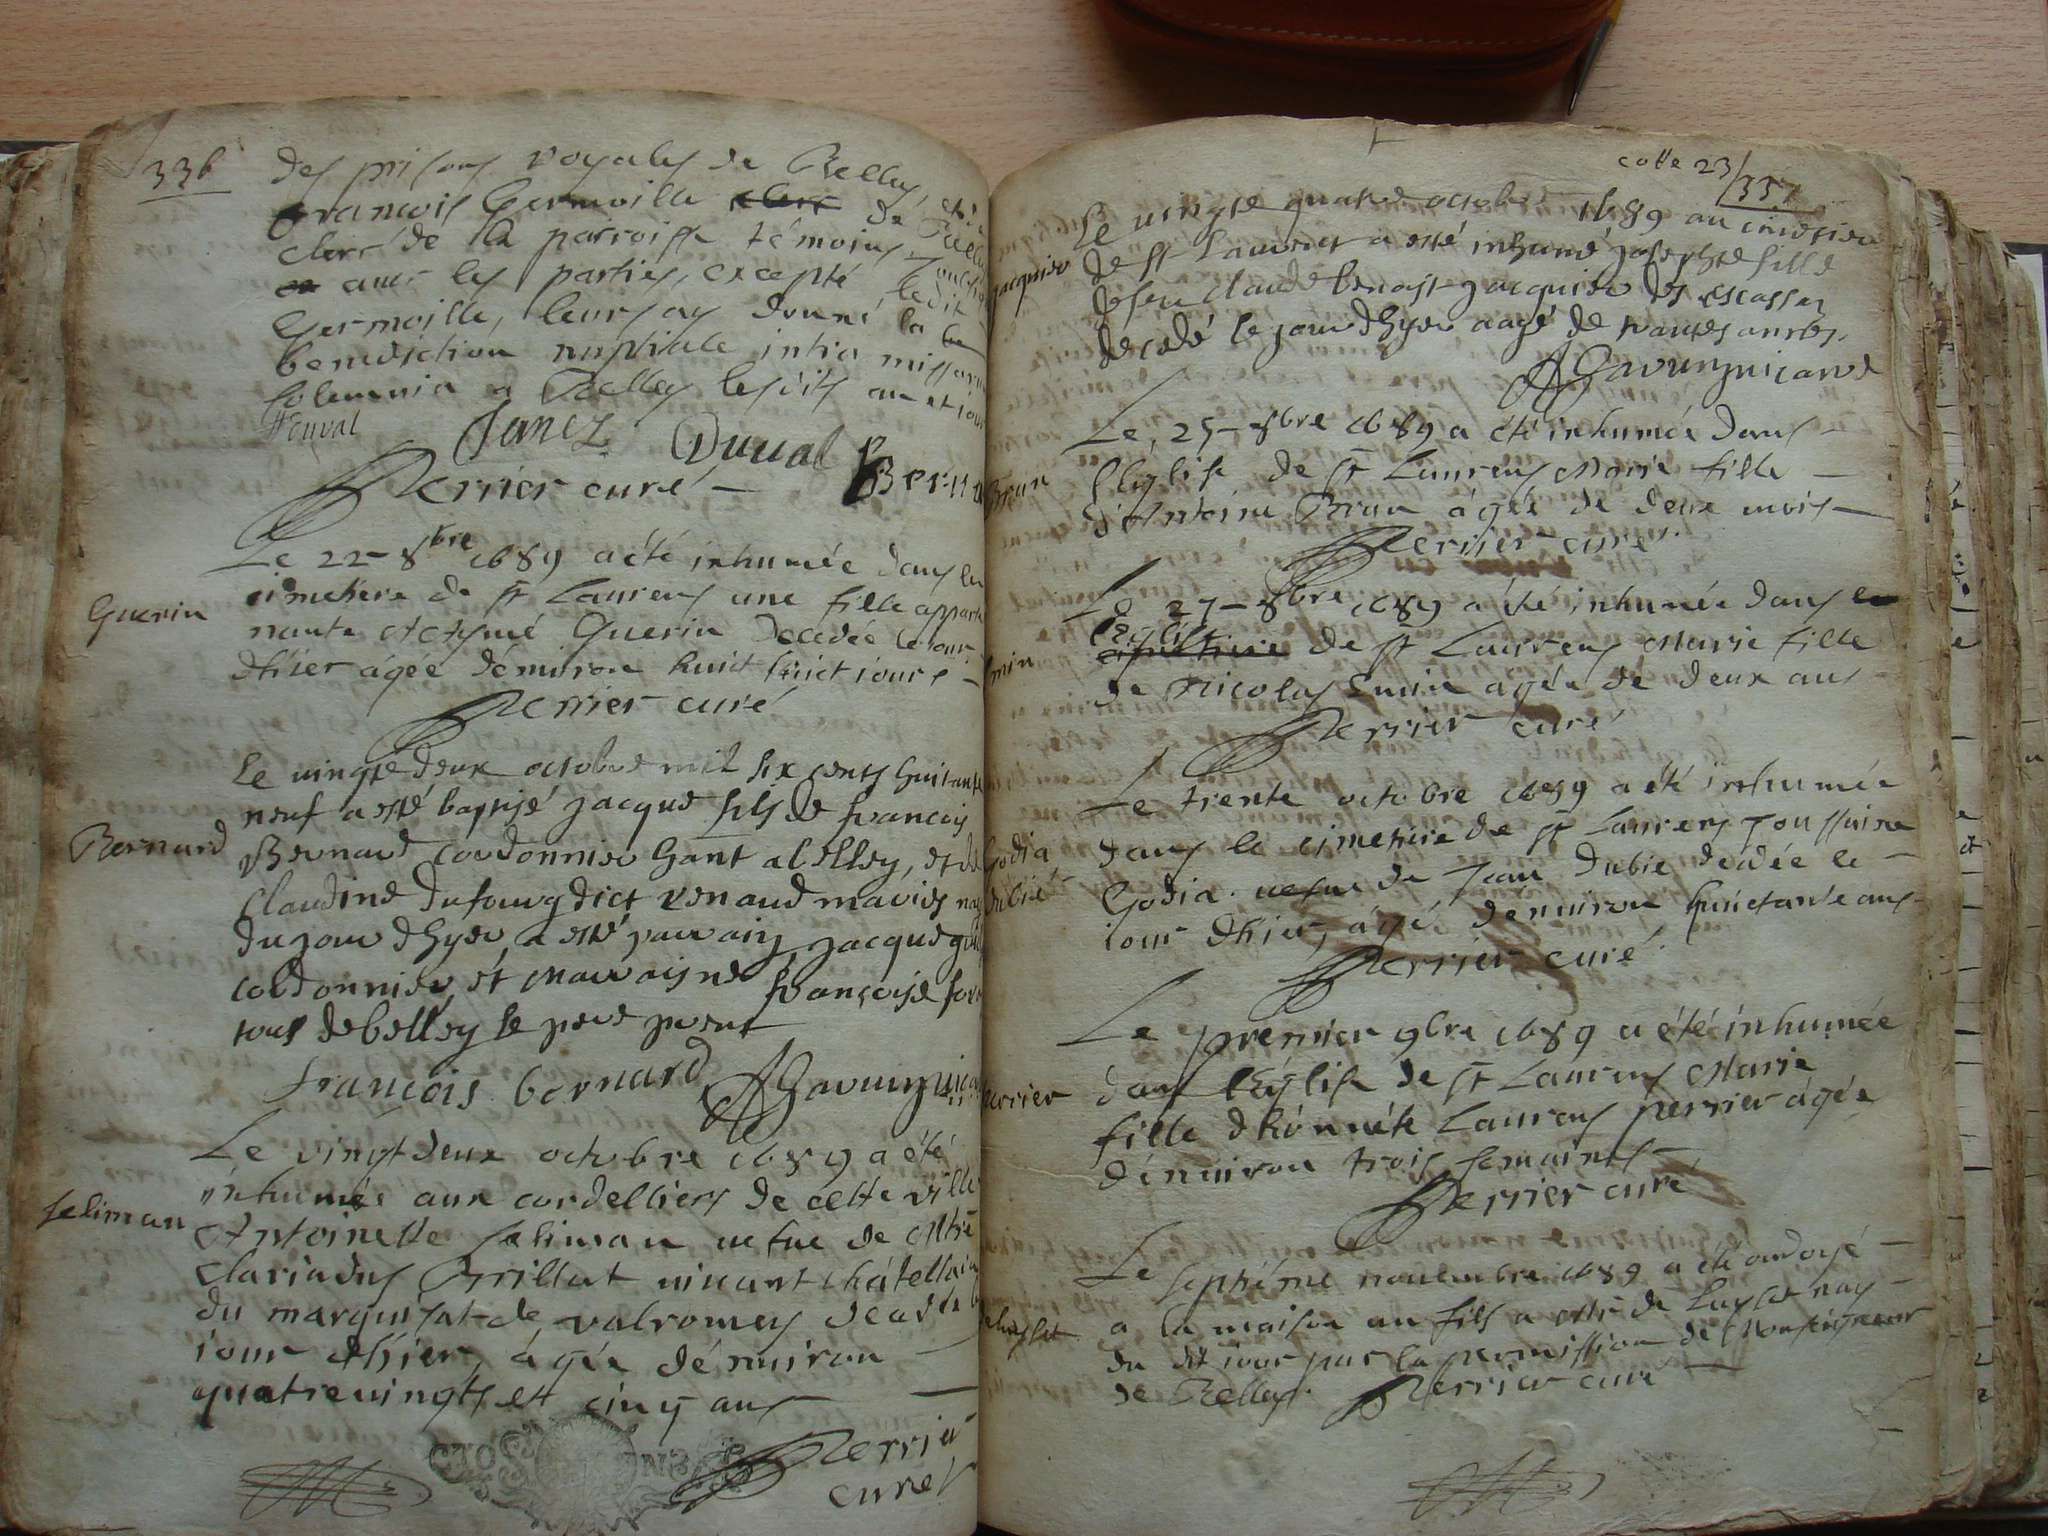 336
des prisons royales de Belley, et de
francois Germoille clerc de Belley
clerc de la parroisse témoins
avec les parties, excepté ledit
Germoille, leurs ay donné la be
benediction nuptiale intra missarum
solemnia a Belley lesdits an et jour
Janez Duual Bernard
Perrier curé
Le 22 8bre 1689 a été inhumée dans le
cimetiere de st Laurens une fille apparte
nante et Guerin decedée le jour
d'hier âgée d'environ huict huict iours
Guerin
Perrier curé
Le vingte deux octobre mil six cents huitante
neuf a esté baptisé jacque fils de francois
Bernard cordonnier habitant a belley, et de
Claudine dufourg dict renaud mariés nay
Bernard
du jour dhyer a esté parrain jacque
cordonnier et marraisne françoise
tous de belley le pere present
francois bernard
Le vingt deux octobre 1689 a été
inhumée aux cordelliers de cette ville
Antoinette Seliman uefue de Mtre
Seliman
Clariadus Brillat uiuant châtellain
du marquisat de valromey decedée le
iour d'hier, âgée d'enuiron
quatreuingts et cinq ans
Perrier
curé
cotte 23/337
Le vingte quatre octobre 1689 au cimetiere
de st Laurent a esté inhumé josephte fille
jacquier
de feu Claude benoist jacquier des escassas
decedé le jour dhyer aagé de trantes ans
Le 25 8bre 1689 a été inhumée dans
l'Eglise de st Laurens Marie fille
Brun
d'Antoine Brun âgée de deux mois
Perrier curé
Le 27 8bre 1689 a été inhumée dans
l'Eglise de st Laurens Marie fille
de Nicolas âgée de deux ans
Perrier curé
Le trente octobre 1689 a été inhumée
dans le cimetiere de st Laurens Toussaine
Godia uefue de Jean Dubié decedée le
Godia
Dubié
iour d'hier, âgé d'enuiron huictante ans
Perrier curé
Le premier 9bre 1689 a été inhumée
dans l'Eglise de st Laurens Marie
perrier
fille d'honnête Laurens perrier âgée
d'enuiron trois semaines
Perrier curé
Le septiéme nouembre 1689 a été ondoyé
a la maison un fils a Mr de nay
du dit iour par la permission de Monseigneur
de Belley. Perrier curé